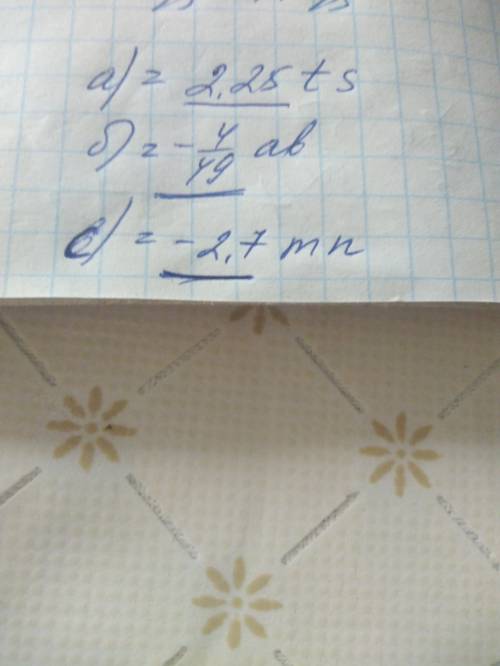 а) = 2.25 ts
б) = - 4/49 ab
в) = - 2,7 mn